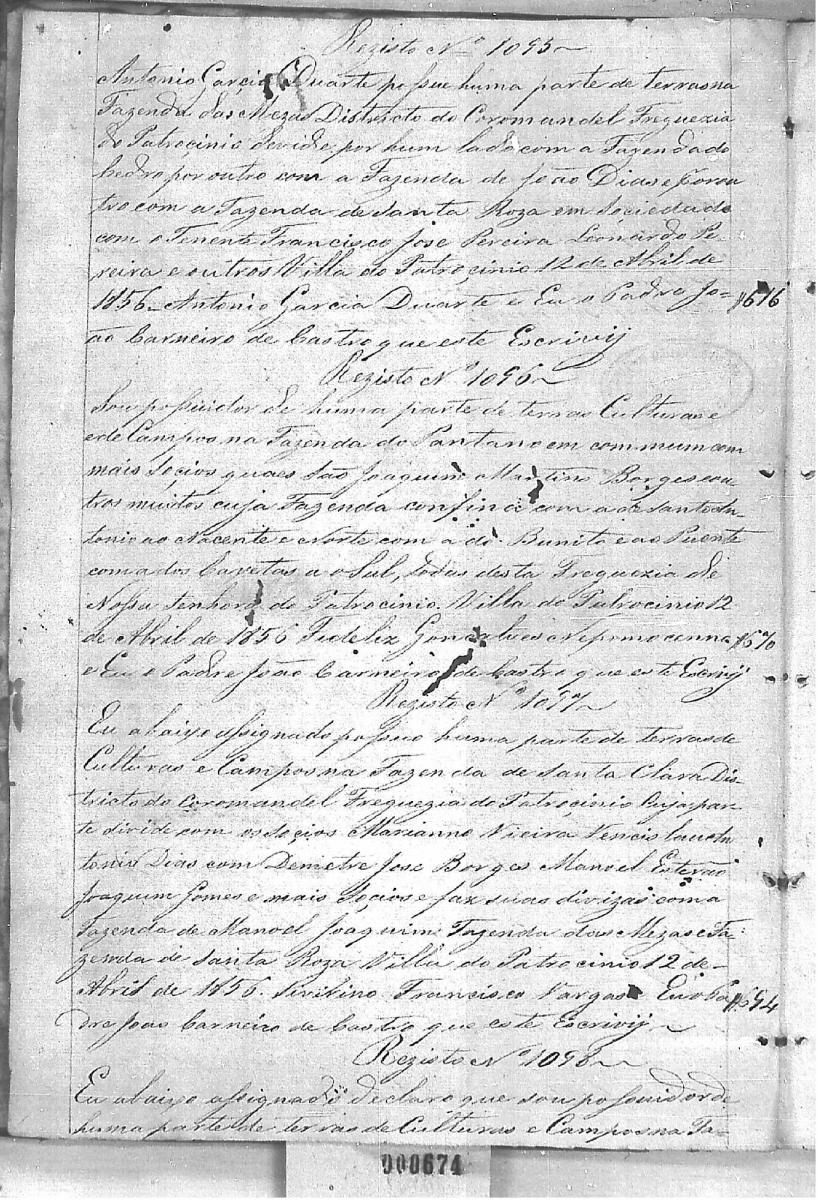 Rezisto Nº 1095
Antonio Garcia Duarte possue huma parte de terras na
Fazenda das Mezas Districto do Coromandel Freguezia
do Patrocinio devide por hum lado com a Fazenda do
Pedro por outro com a Fazenda de João Dias e por ou
tro com a Fazenda de Santa Roza em Sociedade
com o Tenente Francisco Jose Pereira Leonardo Pe-
reira e outros Villa do Patrocinio 12 de Abril de
1856 Antonio Garcia Duarte e Eu o Padre Jo=
ão Carneiro de Castro que este Escrivij
Rezisto Nº 1096
Sou possuidor de huma parte de terras Culturas e
e de Campos na Fazenda do Pantano em commum com
mais Socios quaes são Joaquim Martins Borges e ou
tros muitos cuja Fazenda confina com a de Santo An-
tonio ao Nacente e Norte com a do Bunito e ao Puente
com a dos Cavetas a o Sul, todas desta Freguezia de
Nossa Senhora do Patrocinio. Villa do Patrocinio 12
de Abril de 1856 Fideliz Gonsalves Nepomocenna
e Eu o Padre João Carneiro de Castro que este Escrivij
Rezisto Nº 1097
Eu abaixo assignado possuo huma parte de terras de
Culturas e Campos na Fazenda de Santa Clara Dis-
tricto do Coromandel Freguezia do Patrocinio Cuja par
te divide com os Socios Marianno Vieira Vencislau An
tonio Dias com Demetre Jose Borges Manoel Estevão
Joaquim Gomes e mais Socios e faz suas divizas com a
Fazenda de Manoel Joaquim Fazenda das Mezas e Fa=
zenda de Santa Roza Villa do Patrocinio 12 de
Abril de 1856. Francisco Vargas Eu o Pa
dre Joao Carneiro de Castro que este Escrivij
Rezisto Nº 1098
Eu abaixo assignado declaro que sou possuidor de
huma parte de terras de Culturas e Campos na Fa-
000674